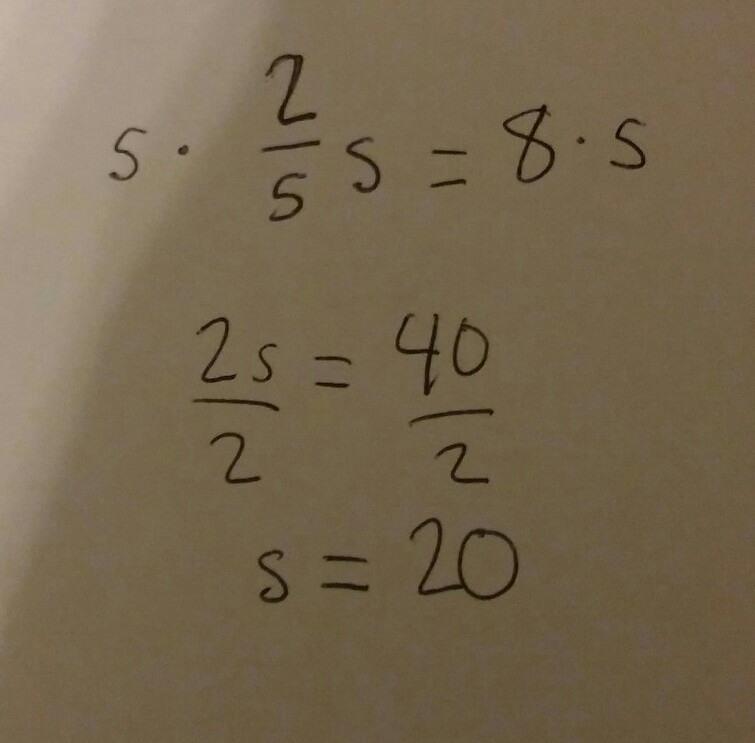 5 · 2/5 s = 8 · 5
2s/2 = 40/2
s = 20